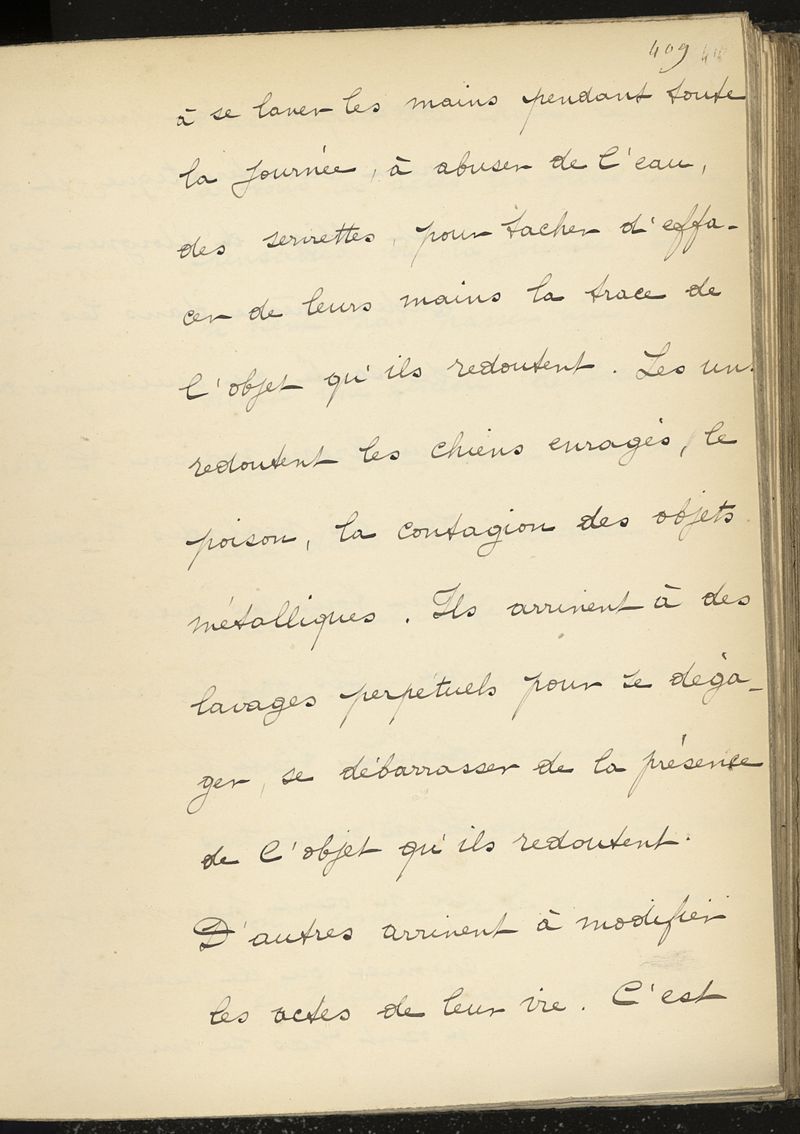 409
à se laver les mains pendant toute
la journée, à abuser de l'eau,
des serviettes, pour tacher d'effa-
cer de leurs mains la trace de
l'objet qu'ils redoutent. Les uns
redoutent les chiens enragés, le
poison, la contagion des objets
métalliques. Ils arrivent à des
lavages perpétuels pour se déga-
ger, se débarrasser de la présence
de l'objet qu'ils redoutent.
D'autres arrivent à modifier
les actes de leur vie. C'est